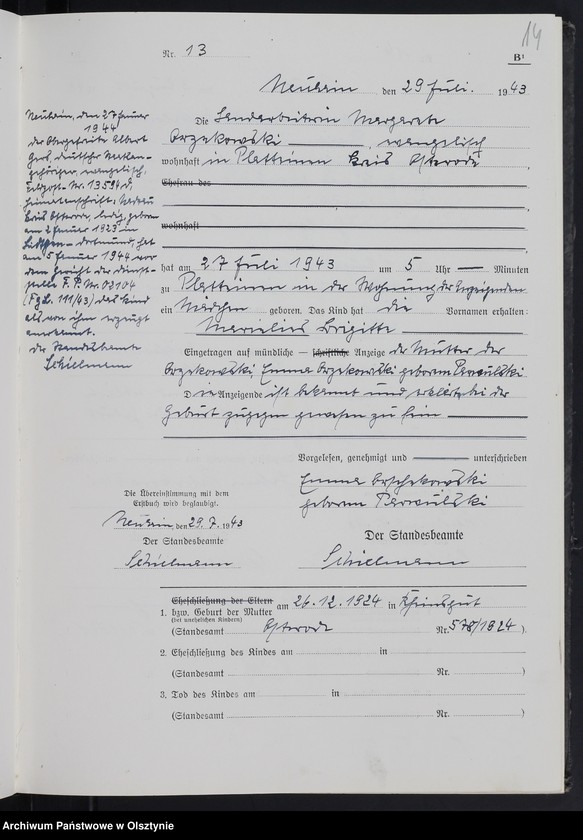 14
B¹
Nr. 13
den 29 Juli. 1943
Die Landarbeiterin Margarete
Orzekowski, evangelisch
wohnhaft in Platteinen Kreis Osterode
Ehefrau des
wohnhaft
hat am 27 Juli 1943 um 5 Uhr — Minuten
zu Platteinen in der Wohnung der Anzeigenden
ein Mädchen geboren. Das Kind hat die Vornamen erhalten:
Brigitte
Eingetragen auf mündliche — schriftliche Anzeige der Mutter der
Orzekowski, Emma Orzekowski geborene
Die Anzeigende ist bekannt und erklärt, bei der
Geburt zugegen gewesen zu sein
Vorgelesen, genehmigt und unterschrieben
Emma
geborene
Der Standesbeamte
Neuhain, den 27 Januar
1944
der Obergefreite Albert
deutscher
evangelisch,
Feldpost-Nr.
Kreis Osterode, ledig, geboren
am 2 Januar 1923 in
Dortmund, hat
am 5 Januar 1944 vor
dem Gericht der Dienst-
stelle F.P. Nr. 03104
111/43) das Kind
als von ihm erzeugt
anerkannt.
der Standesbeamte
Die Übereinstimmung mit dem
Erstbuch wird beglaubigt.
den 29. 7. 1943
Der Standesbeamte
Eheschließung der Eltern
1. bzw. Geburt der Mutter am 26.12.1924 in
(bei unehelichen Kindern)
(Standesamt Osterode Nr. 578/1924)
2. Eheschließung des Kindes am in
(Standesamt Nr. )
3. Tod des Kindes am in
(Standesamt Nr. )
Archiwum Państwowe w Olsztynie